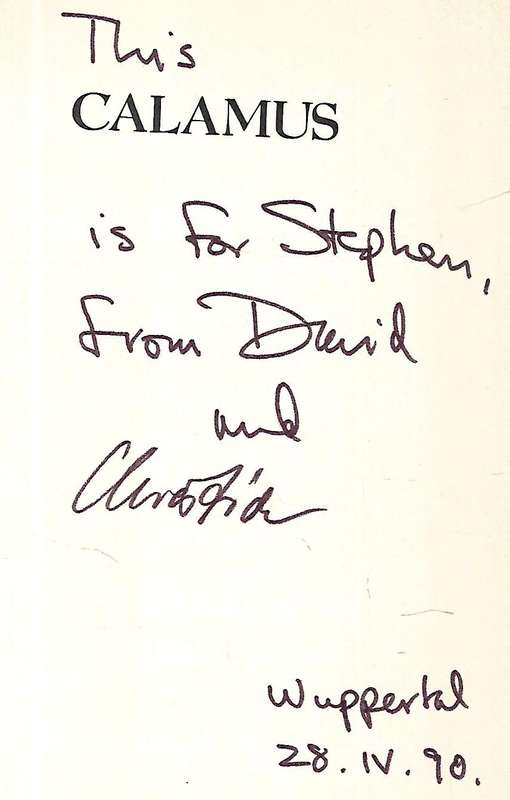 This
CALAMUS
is for Stephen,
from David
and
Christian
Wuppertal
28.IV.90.